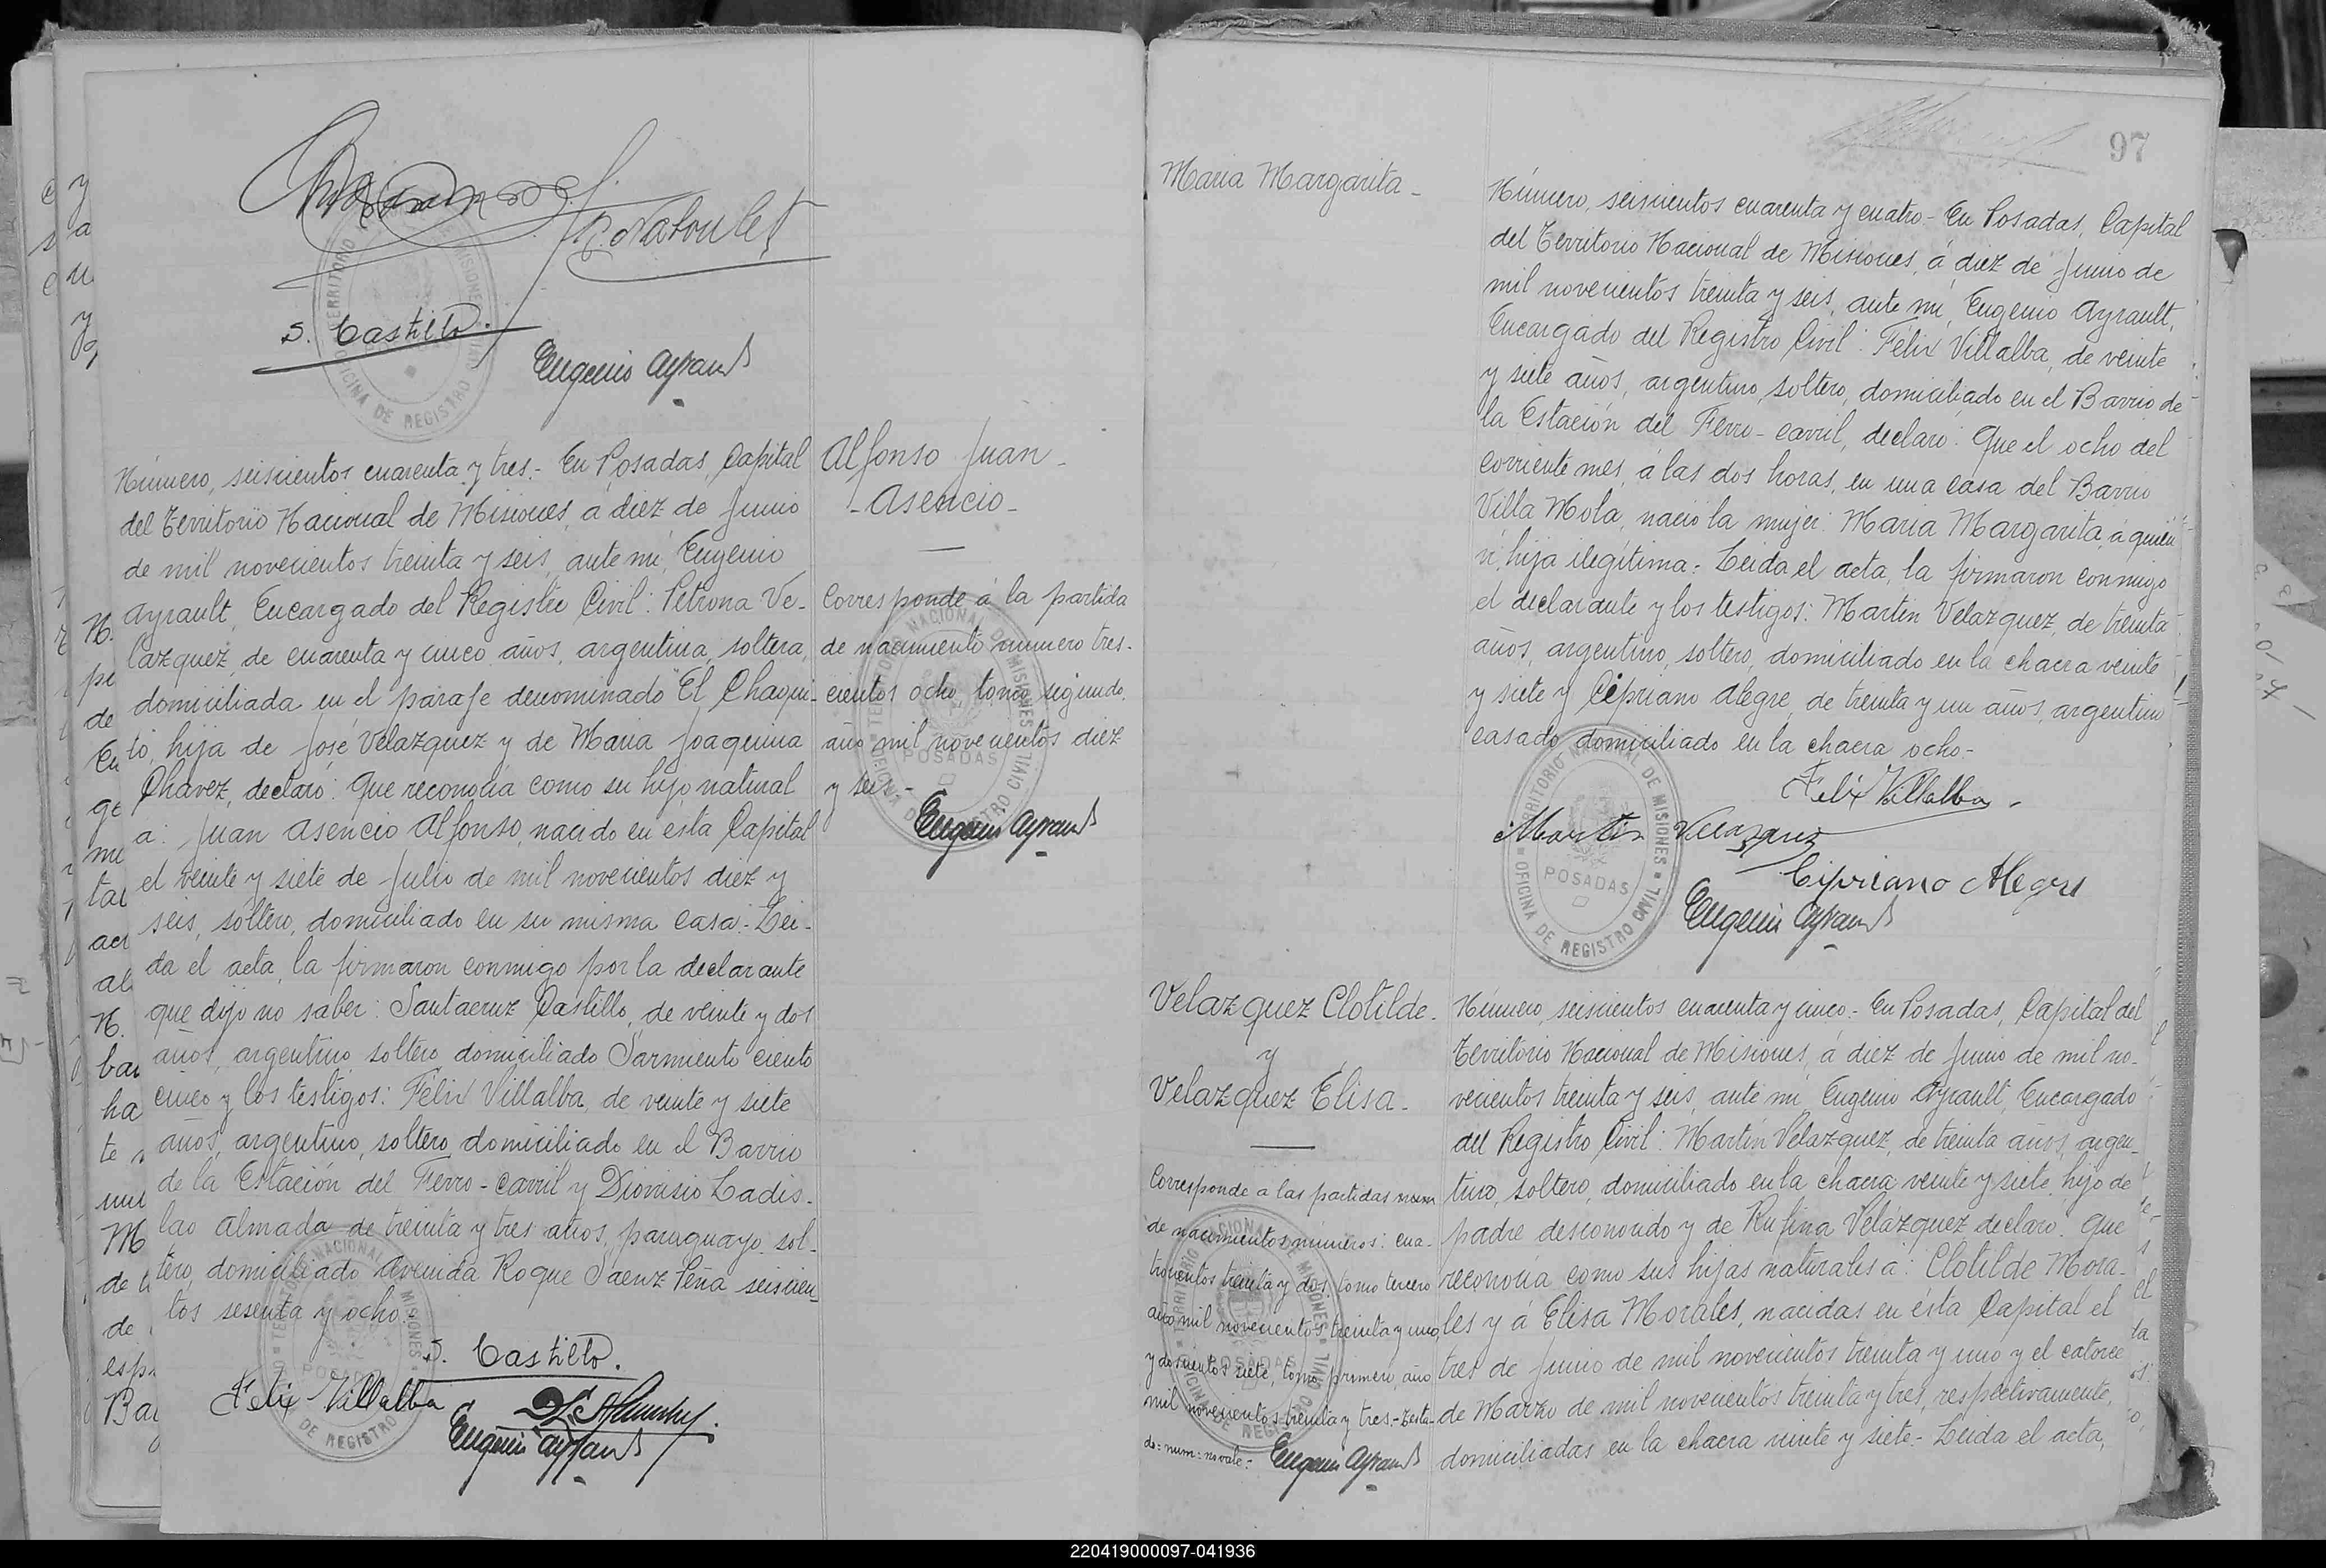 S. Castillo.
Eugenio Ayrault
Número, seiscientos cuarenta y tres.- En Posadas, Capital
del Territorio Nacional de Misiones, á diez de Junio
de mil novecientos treinta y seis, ante mí, Eugenio
Ayrault, Encargado del Registro Civil: Petrona Ve-
lazquez, de cuarenta y cinco años, argentina, soltera,
domiciliada en el paraje denominado "El Chaqui-
to, hija de José Velazquez y de Maria Joaquina
Chavez, declaró: Que reconocía como su hijo natural
a: Juan Asencio Alfonso, nacido en esta Capital
el veinte y siete de Julio de mil novecientos diez y
seis, soltero, domiciliado en su misma casa.- Lei-
da el acta, la firmaron conmigo por la declarante
que dijo no saber: Santacruz Castillo, de veinte y dos
años, argentino, soltero, domiciliado Sarmiento ciento
cinco y los testigos: Félix Villalba, de veinte y siete
años, argentino, soltero domiciliado en el Barrio
de la Estación del Ferro-carril y Dionisio Ladis-
lao Almada de treinta y tres años, paraguayo, sol-
tero, domiciliado Avenida Roque Saenz Peña seiscien-
tos sesenta y ocho.-
S. Castillo.
Felix Villalba
Eugenio Ayrault
Alfonso Juan-
-Asencio-
Corresponde á la partida
de nacimiento número tres-
cientos ocho, tomo segundo,
año mil novecientos diez
y seis.-
Eugenio Ayrault
TERRITORIO NACIONAL DE MISIONES
POSADAS
OFICINA DE REGISTRO CIVIL
97
Maria Margarita-
Número, seiscientos cuarenta y cuatro.- En Posadas, Capital
del Territorio Nacional de Misiones, á diez de Junio de
mil novecientos treinta y seis, ante mí, Eugenio Ayrault,
Encargado del Registro Civil: Félix Villalba, de veinte
y siete años, argentino, soltero, domiciliado en el Barrio de
la Estación del Ferro-carril, declaró: Que el ocho del
corriente mes, á las dos horas, en una casa del Barrio
Villa Mola, nació la mujer: Maria Margarita, á quien
ví, hija ilegítima.- Leida el acta, la firmaron conmigo
el declarante y los testigos: Martín Velazquez, de treinta
años, argentino, soltero, domiciliado en la chacra veinte
y siete y Cipriano Alegre, de treinta y un años, argentino
casado, domiciliado en la chacra ocho.-
Felix Villalba
Martin Velazquez
Cipriano Alegre
Eugenio Ayrault
TERRITORIO NACIONAL DE MISIONES
POSADAS
OFICINA DE REGISTRO CIVIL
Velazquez Clotilde.
y
Velazquez Elisa.
Corresponde a las partidas num
de nacimientos números: cua-
trocientos treinta y dos, tomo tercero
año mil novecientos treinta y uno,
y doscientos siete, tomo primero, año
mil novecientos treinta y tres.- Testa-
do: num: no vale:-
Eugenio Ayrault
Número, seiscientos cuarenta y cinco.- En Posadas, Capital del
Territorio Nacional de Misiones, á diez de Junio de mil no-
vecientos treinta y seis, ante mí, Eugenio Ayrault, Encargado
del Registro Civil: Martín Velazquez, de treinta años, argen-
tino, soltero, domiciliado en la chacra veinte y siete, hijo de
padre desconocido y de Rufina Velázquez, declaró: Que
reconocía como sus hijas naturales á: Clotilde Mora-
les y á Elisa Morales, nacidas en ésta Capital el
tres de Junio de mil novecientos treinta y uno y el catorce
de Marzo de mil novecientos treinta y tres, respectivamente,
domiciliadas en la chacra veinte y siete.- Leida el acta,
220419000097-041936